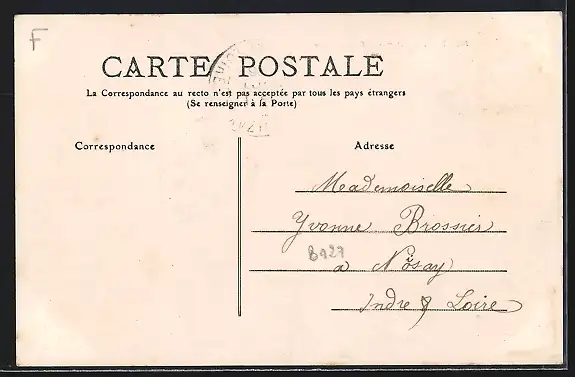 F
CARTE POSTALE
La Correspondance au recto n'est pas acceptée par tous les pays étrangers
(Se renseigner à la Poste)
Correspondance
Adresse
Mademoiselle
Yvonne Brossier
B427
à Nôsay
Indre & Loire